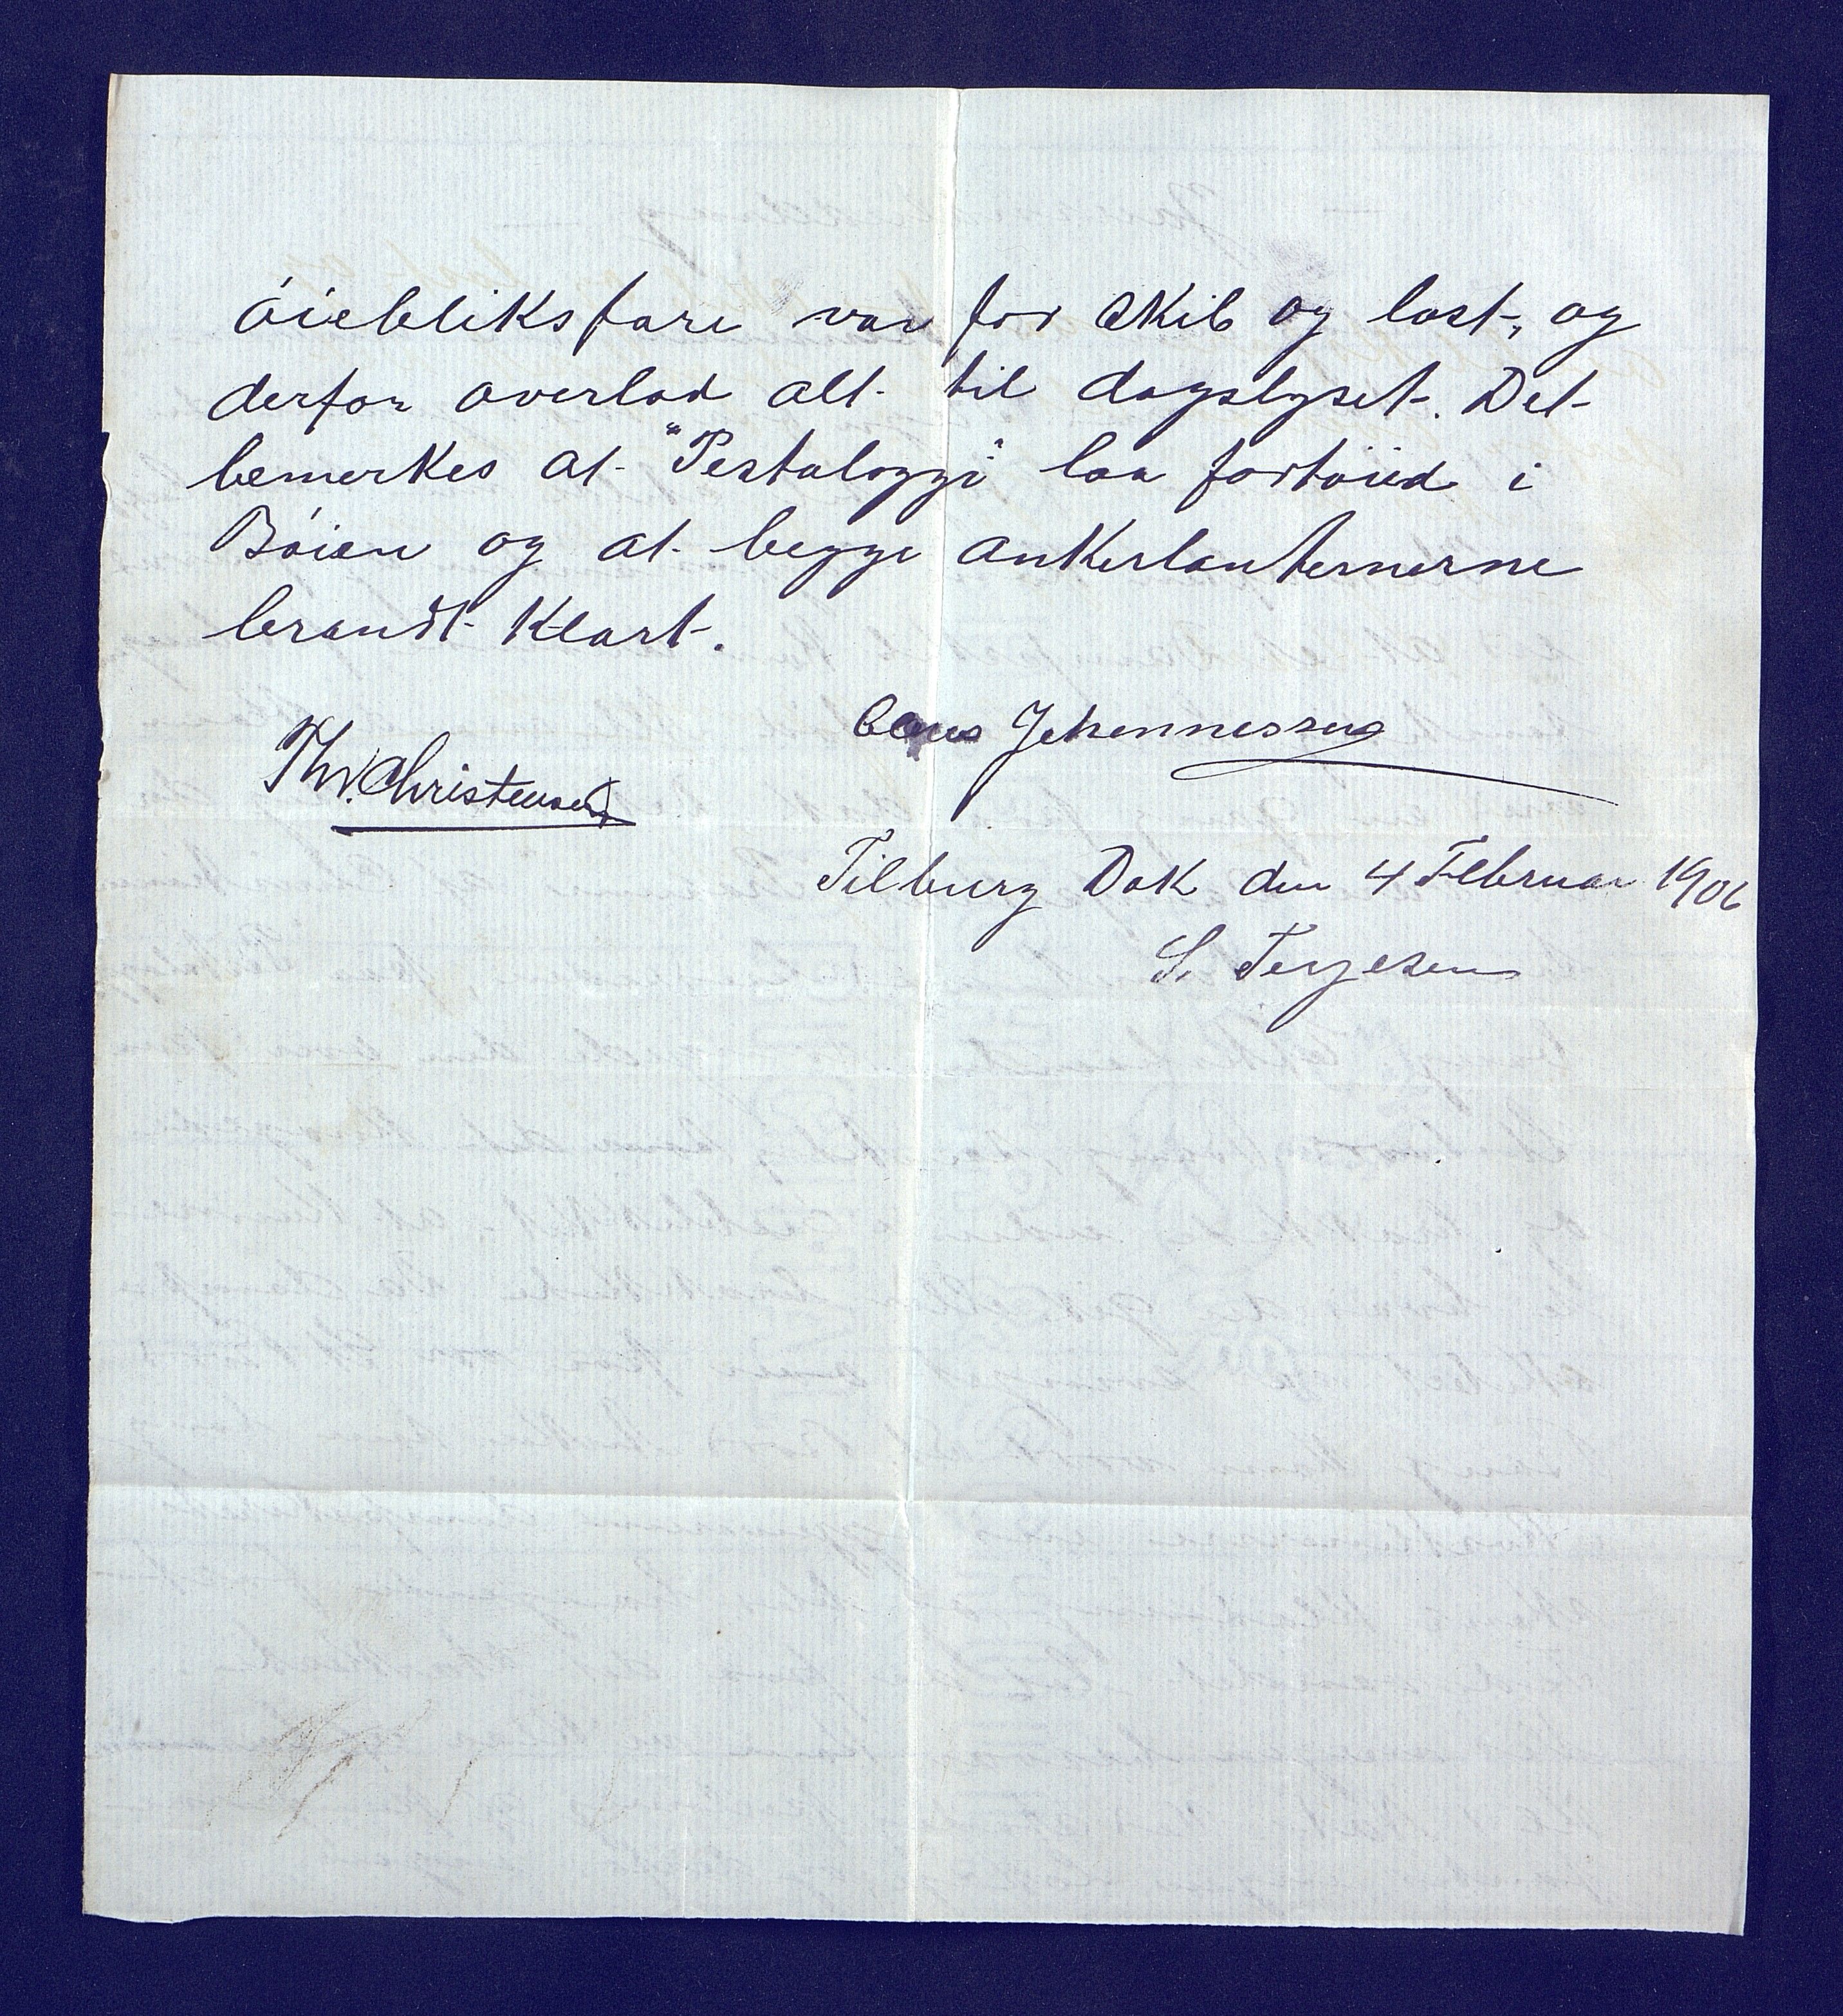 óiebliksfare var for Skib og last, og
derfor overlod alt til dagslyset. Det
bemerkes at "Pestalozzi" laa fortóied i
Bóien og at begge Ankerlanternerne
brandt klart.
Johannessen
Thv. Christensen
Tilbury Dok den 4 Februar 1906
S. Terjesen